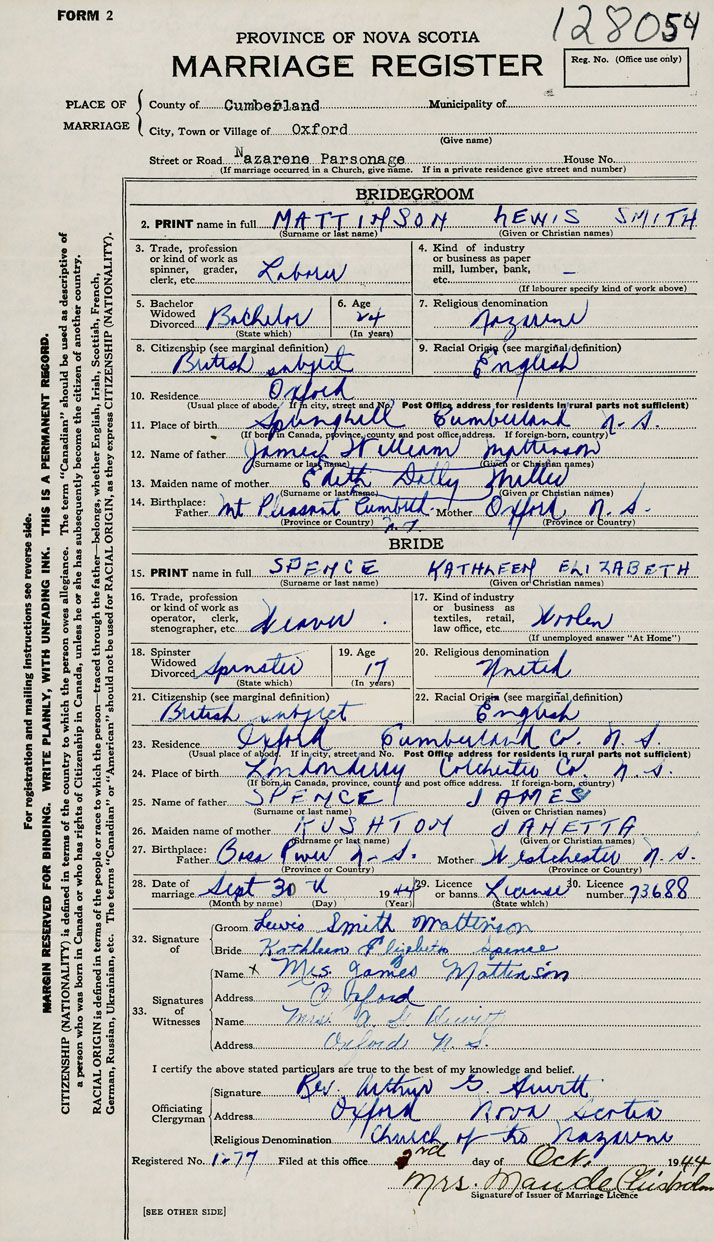 FORM 2
128054
PROVINCE OF NOVA SCOTIA
MARRIAGE REGISTER
Reg. No. (Office use only)
PLACE OF MARRIAGE
County of Cumberland Municipality of
City, Town or Village of Oxford
(Give name)
Street or Road Nazarene Parsonage House No.
(If marriage occurred in a Church, give name. If in a private residence give street and number)
BRIDEGROOM
2. PRINT name in full MATTINSON LEWIS SMITH
(Surname or last name) (Given or Christian names)
3. Trade, profession or kind of work as spinner, grader, clerk, etc. Laborer
4. Kind of industry or business as paper mill, lumber, bank, etc. —
(If labourer specify kind of work above)
5. Bachelor Widowed Divorced Bachelor
(State which)
6. Age 24
(In years)
7. Religious denomination Nazarene
8. Citizenship (see marginal definition) British subject
9. Racial Origin (see marginal definition) English
10. Residence Oxford
(Usual place of abode. If in city, street and No. Post Office address for residents in rural parts not sufficient)
11. Place of birth Springhill Cumberland N. S.
(If born in Canada, province, county and post office address. If foreign-born, country)
12. Name of father James William Mattinson
(Surname or last name) (Given or Christian names)
13. Maiden name of mother Edith Dolly Miller
(Surname or last name) (Given or Christian names)
14. Birthplace: Father Mt Pleasant Cumbld. N.S. Mother Oxford N. S.
(Province or Country) (Province or Country)
BRIDE
15. PRINT name in full SPENCE KATHLEEN ELIZABETH
(Surname or last name) (Given or Christian names)
16. Trade, profession or kind of work as operator, clerk, stenographer, etc. Weaver
17. Kind of industry or business as textiles, retail, law office, etc. Woolen
(If unemployed answer "At Home")
18. Spinster Widowed Divorced Spinster
(State which)
19. Age 17
(In years)
20. Religious denomination United
21. Citizenship (see marginal definition) British subject
22. Racial Origin (see marginal definition) English
23. Residence Oxford Cumberland Co. N. S.
(Usual place of abode. If in city, street and No. Post Office address for residents in rural parts not sufficient)
24. Place of birth Londonderry Colchester Co. N. S.
(If born in Canada, province, county and post office address. If foreign-born, country)
25. Name of father SPENCE JAMES
(Surname or last name) (Given or Christian names)
26. Maiden name of mother RUSHTON JANETTA
(Surname or last name) (Given or Christian names)
27. Birthplace: Father Bass River N. S. Mother Westchester N. S.
(Province or Country) (Province or Country)
28. Date of marriage Sept 30 1944
(Month by name) (Day) (Year)
29. Licence or banns License
(State which)
30. Licence number 73688
32. Signature of
Groom Lewis Smith Mattinson
Bride Kathleen Elizabeth Spence
33. Signatures of Witnesses
Name x Mrs. James Mattinson
Address Oxford
Name Mrs. A. G. Hewitt
Address Oxford N. S.
I certify the above stated particulars are true to the best of my knowledge and belief.
Officiating Clergyman
Signature Rev. Arthur G Hewitt
Address Oxford Nova Scotia
Religious Denomination Church of the Nazarene
Registered No. 1-77 Filed at this office 2nd day of Oct. 1944
Mrs. Maude Chisholm
Signature of Issuer of Marriage Licence
[SEE OTHER SIDE]
For registration and mailing instructions see reverse side.
MARGIN RESERVED FOR BINDING. WRITE PLAINLY, WITH UNFADING INK. THIS IS A PERMANENT RECORD.
CITIZENSHIP (NATIONALITY) is defined in terms of the country to which the person owes allegiance. The term "Canadian" should be used as descriptive of
a person who was born in Canada or who has rights of Citizenship in Canada, unless he or she has subsequently become the citizen of another country.
RACIAL ORIGIN is defined in terms of the people or race to which the person—traced through the father—belongs, whether English, Irish, Scottish, French,
German, Russian, Ukrainian, etc. The terms "Canadian" or "American" should not be used for RACIAL ORIGIN, as they express CITIZENSHIP (NATIONALITY).